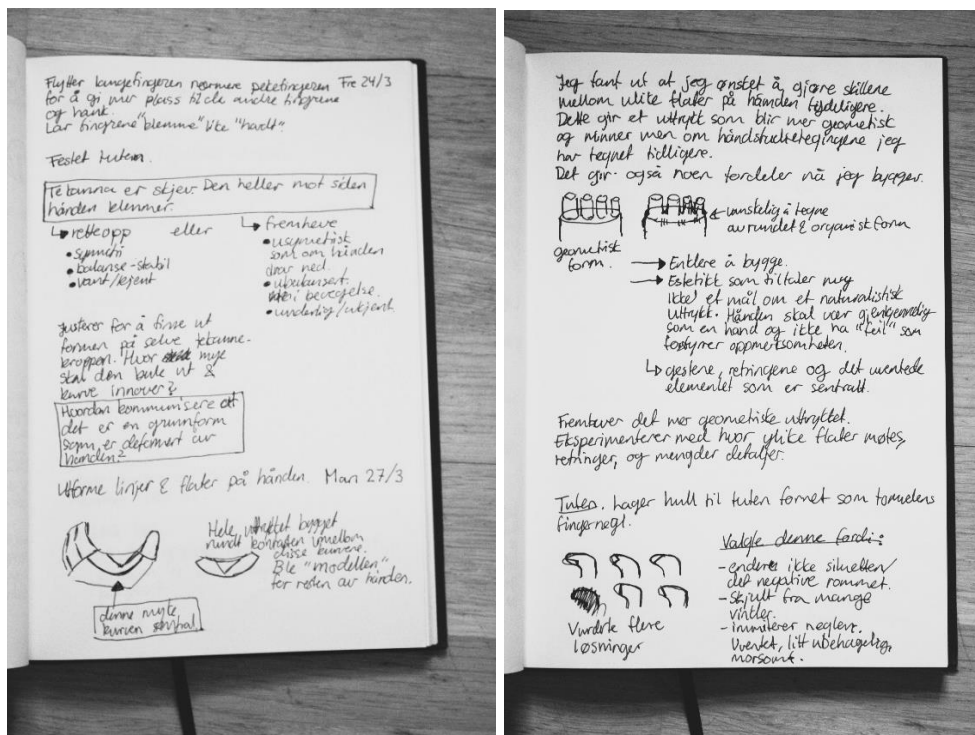 Flytter langefingeren nærmere pekefingeren Fre 24/3
for å gi mer plass til de andre fingrene
og hank.
Lar fingrene "klemme" litt "hardt".
Festet tuten.
Tekanna er skjev. Den heller mot siden
hånden klemmer.
↳ rette opp eller
• symmetri
• balanse - stabil
• vant/kjent
↳ fremheve
• usymetrisk
som om hånden
drar ned.
• ubalansert.
i bevegelse.
• underlig/ukjent.
Justerer for å finne ut
formen på selve tekanne-
kroppen. Hvor mye
skal den bule ut &
kurve innover?
Hvordan kommunisere att
det er en grunnform
som er deformert av
hånden?
Utforme linjer & flater på hånden. Man 27/3
Hele uttrykket bygget
rundt kontrasten imellom
disse kurvene.
Ble "modellen"
for resten av hånden.
denne myke
kurven sentral.
Jeg fant ut at jeg ønsket å gjøre skillene
mellom ulike flater på hånden tydeligere.
Dette gir et uttrykk som blir mer geometrisk
og minner mer om håndstudietegningene jeg
har tegnet tidligere.
Det gir også noen fordeler nå jeg bygger.
← vanskelig å tegne
avrundet & organisk form
geometrisk
form.
→ Enklere å bygge.
→ Estetikk som tiltaler meg
Ikke et mål om et naturalistisk
uttrykk. Hånden skal vær gjenkjennelig
som en hånd og ikke ha "feil" som
forstyrrer oppmerksomheten.
↳ gestene, retningene og det uventede
elementet som er sentralt.
Fremhever det mer geometriske uttrykket.
Eksperimenterer med hvor ulike flater møtes,
retninger, og mengder detaljer.
Tuten. Lager hull til tuten formet som tommelens
fingernegl.
Vurderte flere
løsninger
Valgte denne fordi:
- endrer ikke silhuetten/
det negative rommet.
- skjult fra mange
vinkler.
- immiterer neglen.
Uventet, litt ubehagelig,
morsomt.